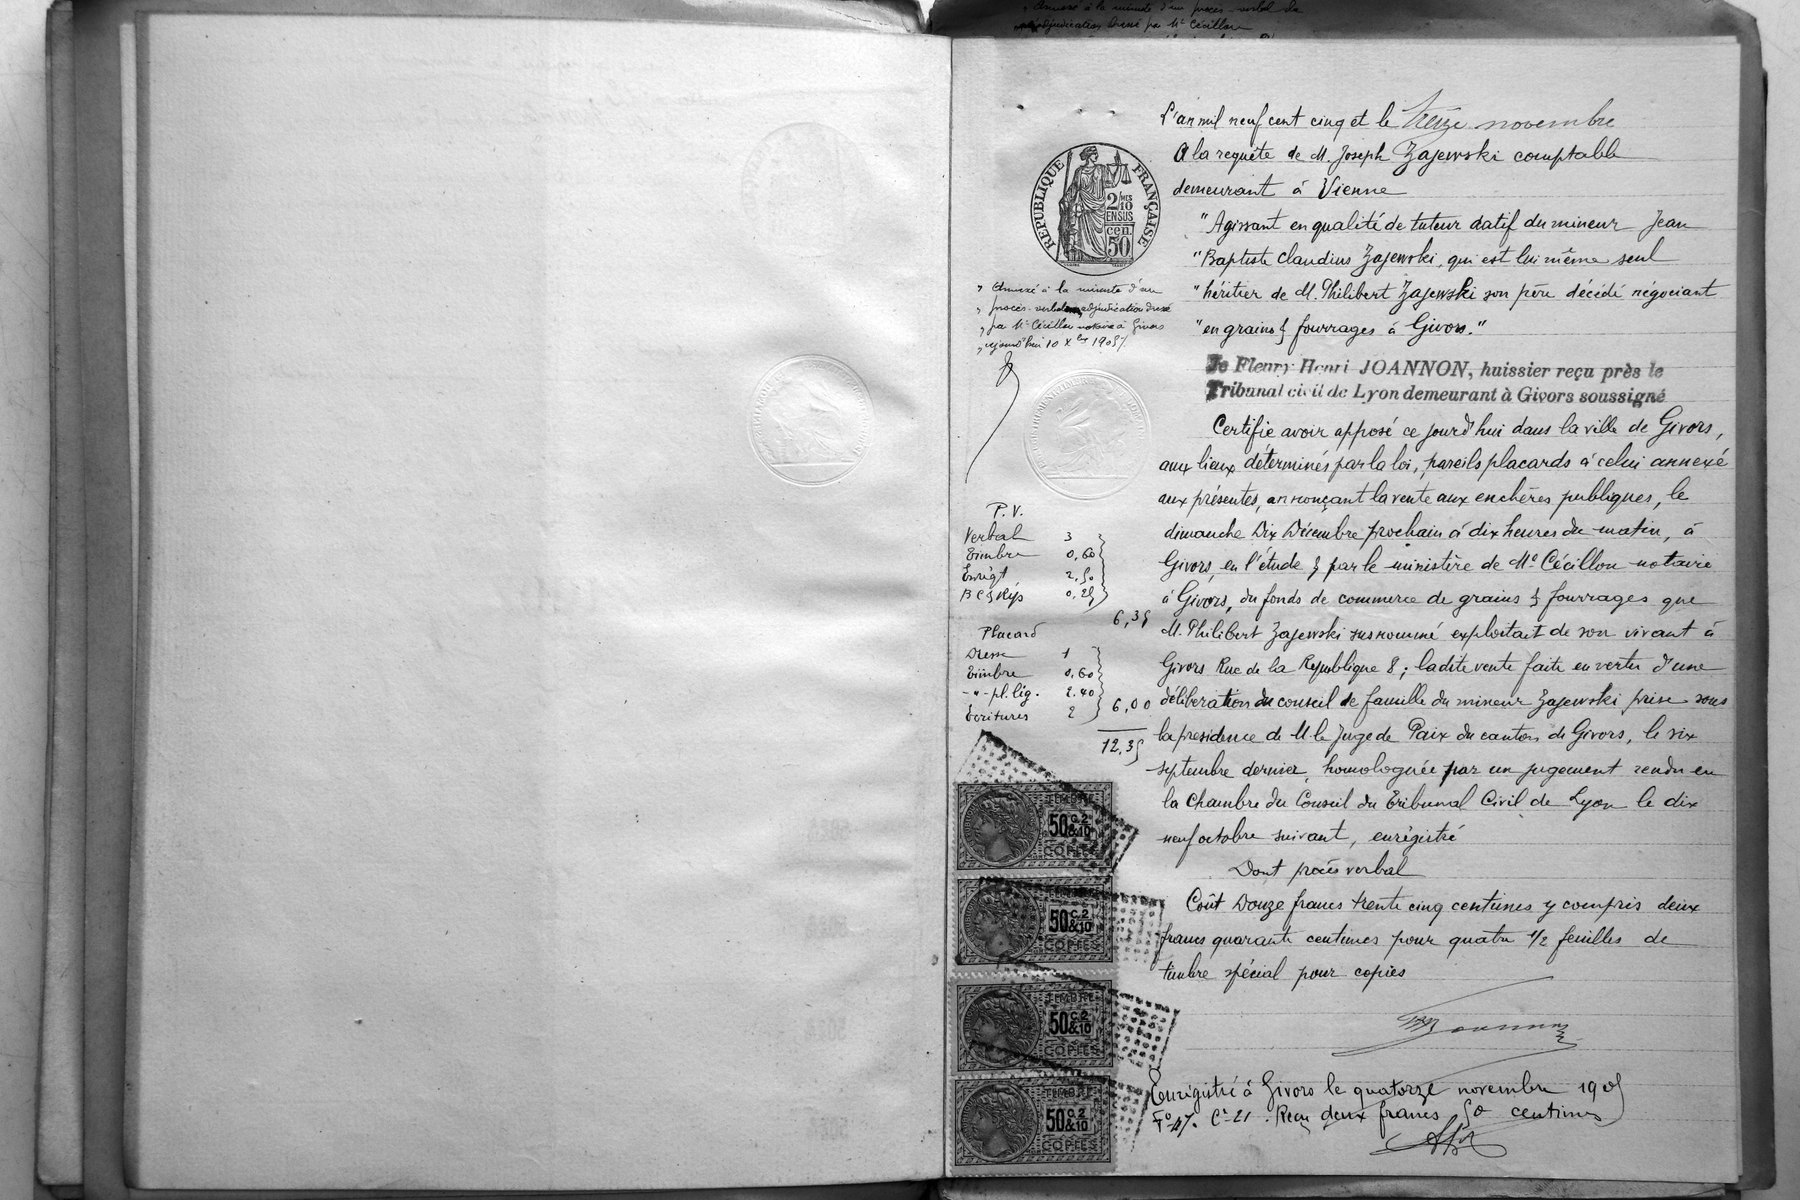 Annexé à la minute d'un procès-verbal
adjudication dressé par Mᵉ Cécillon
L'an mil neuf cent cinq et le treize novembre
A la requête de M. Joseph Zajewski comptable
demeurant à Vienne
"Agissant en qualité de tuteur datif du mineur Jean
"Baptiste Claudius Zajewski, qui est lui même seul
"héritier de M. Philibert Zajewski son père décédé négociant
"en grains & fourrages à Givors."
Je Fleury Henri JOANNON, huissier reçu près le
Tribunal civil de Lyon demeurant à Givors soussigné
Certifie avoir apposé ce jourd'hui dans la ville de Givors,
aux lieux déterminés par la loi, pareils placards à celui annexé
aux présentes, annonçant la vente aux enchères publiques, le
dimanche Dix Décembre prochain à dix heures du matin, à
Givors, en l'étude & par le ministère de Mᵉ Cécillon notaire
à Givors, du fonds de commerce de grains & fourrages que
M. Philibert Zajewski susnommé exploitait de son vivant à
Givors Rue de la République 8; ladite vente faite en vertu d'une
délibération du conseil de famille du mineur Zajewski prise sous
la présidence de M le Juge de Paix du canton de Givors, le six
septembre dernier, homologuée par un jugement rendu en
la Chambre du Conseil du Tribunal Civil de Lyon le dix
neuf octobre suivant, enregistré
Dont procès verbal
Coût Douze francs trente cinq centimes y compris deux
francs quarante centimes pour quatre 1/2 feuilles de
timbre spécial pour copies
Joannon
Enregistré à Givors le quatorze novembre 1905
F° 47. Cᵉ 21. Reçu deux francs 50 centimes
RÉPUBLIQUE FRANÇAISE
2/10 MES
EN SUS
50 cen.
" Annexé à la minute d'un
" procès-verbal adjudication dressé
" par Mᵉ Cécillon notaire à Givors
" aujourd'hui 10 Xbre 1905/.
P.V.
Verbal 3
Timbre 0,60
Enregt 2,50
0,25
6,35
Placard
Dresse 1
Timbre 0,60
-"- pl. lég. 2.40
Ecritures 2
6,00
12,35
TIMBRE
50 C. 2 &10
COPIES
50 C. 2 &10
COPIES
TIMBRE
50 C. 2 &10
COPIES
TIMBRE
50 C. 2 &10
COPIES